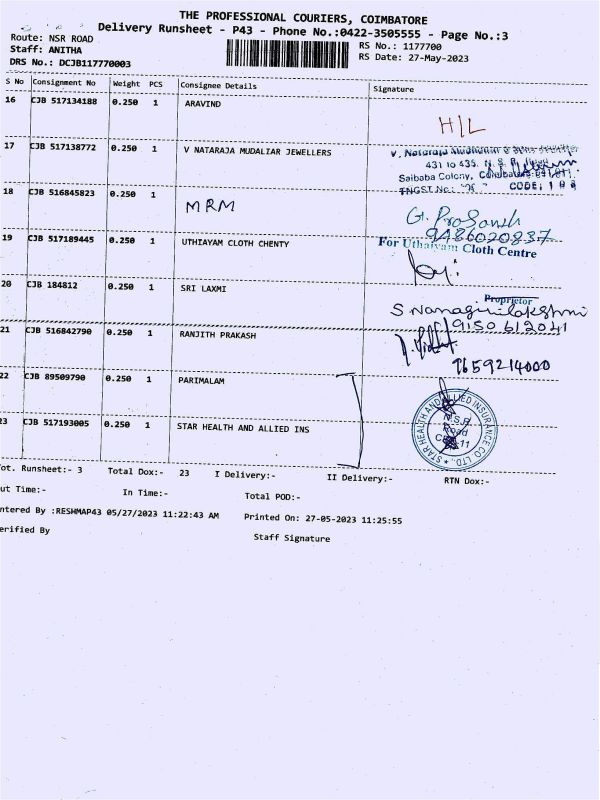 THE PROFESSIONAL COURIERS, COIMBATORE
Delivery Runsheet - P43 - Phone No.:0422-3505555 - Page No.:3
Route: NSR ROAD
RS No.: 1177700
Staff: ANITHA
RS Date: 27-May-2023
DRS No.: DCJB117770003
S No Consignment No Weight PCS Consignee Details Signature
16 CJB 517134188 0.250 1 ARAVIND
H/L
17 CJB 517138772 0.250 1 V NATARAJA MUDALIAR JEWELLERS
V. Nataraja
431 to 435, N. S. R. Road
Saibaba Colony, Coimbatore-641 011.
TNGST No.: CODE:
18 CJB 516845823 0.250 1 MRM
G. Prosansh
9486020837
19 CJB 517189445 0.250 1 UTHIAYAM CLOTH CHENTY
For Uthaiyam Cloth Centre
Proprietor
20 CJB 184812 0.250 1 SRI LAXMI
S Nanagirilakshmi
9150612041
21 CJB 516842790 0.250 1 RANJITH PRAKASH
7659214000
22 CJB 89509790 0.250 1 PARIMALAM
23 CJB 517193005 0.250 1 STAR HEALTH AND ALLIED INS
STAR HEALTH AND ALLIED INSURANCE CO. LTD.
N.S.R.
Road
CBE-11
ot. Runsheet:- 3 Total Dox:- 23 I Delivery:- II Delivery:- RTN Dox:-
ut Time:- In Time:- Total POD:-
ntered By :RESHMAP43 05/27/2023 11:22:43 AM Printed On: 27-05-2023 11:25:55
erified By Staff Signature